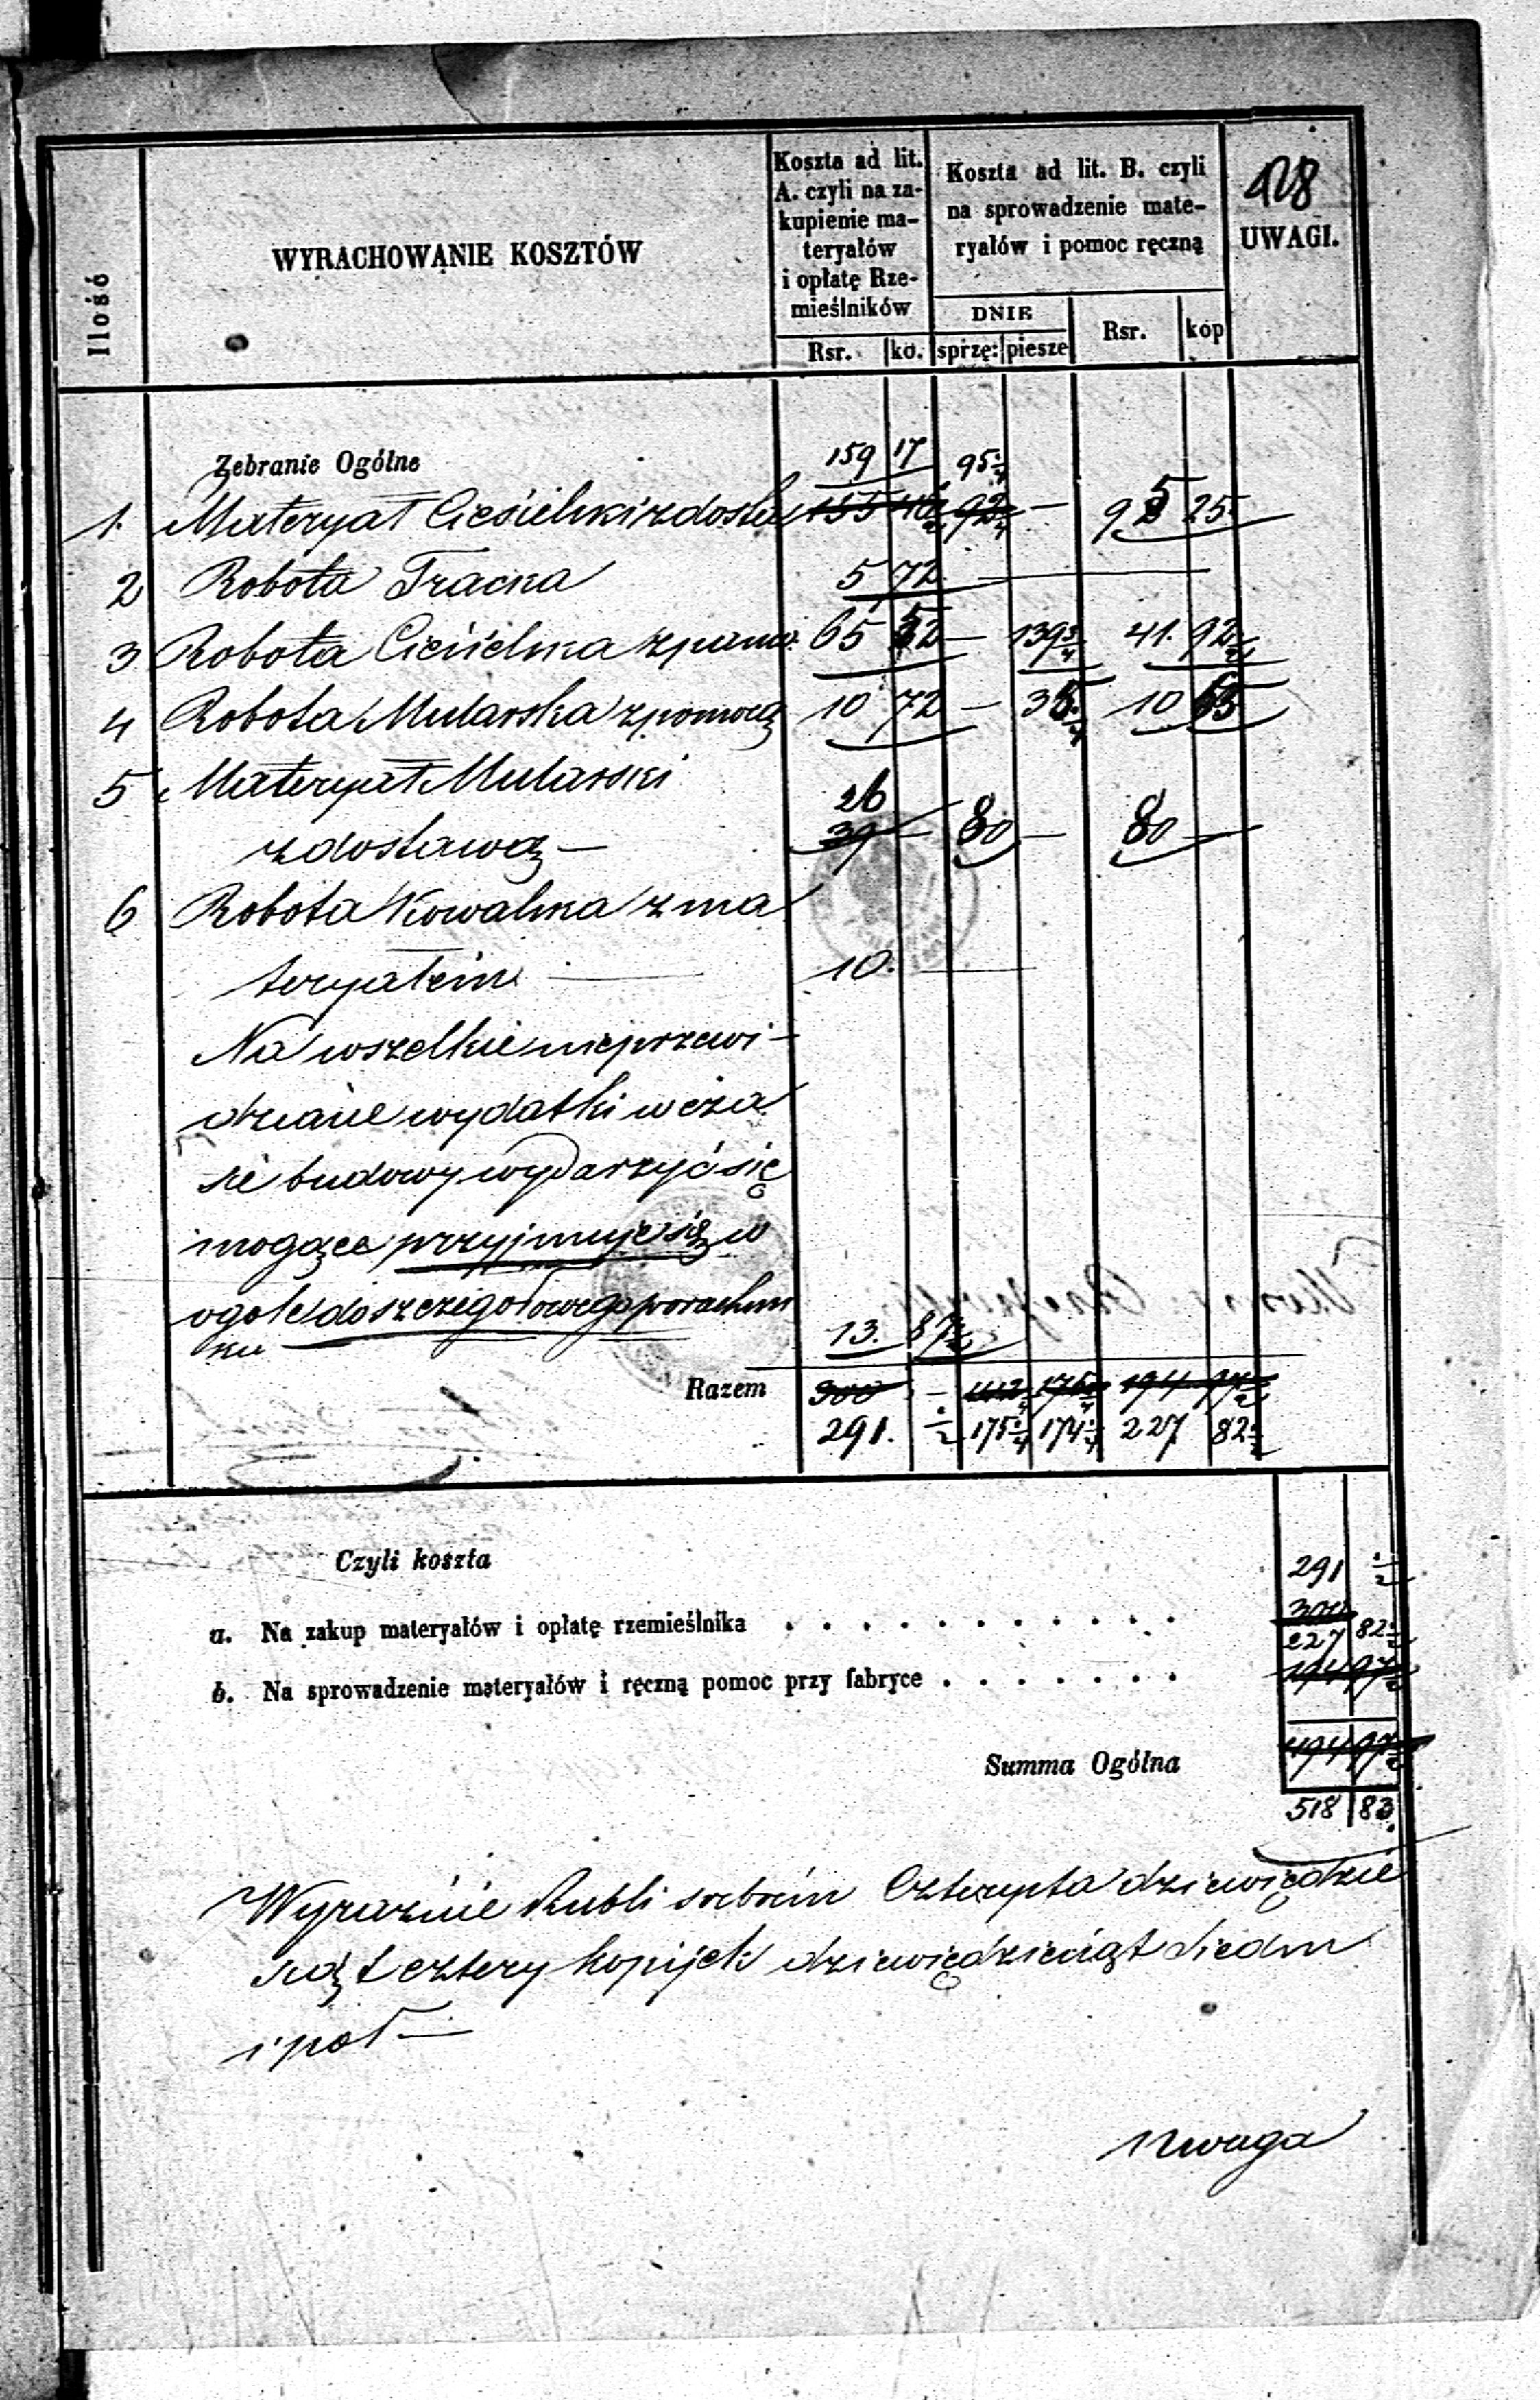 128
Ilość
WYRACHOWANIE KOSZTÓW
Koszta ad lit.
A. czyli na za-
kupienie ma-
teryałów
i opłatę Rze-
mieślników
Rsr. ko.
Koszta ad lit. B. czyli
na sprowadzenie mate-
ryałów i pomoc ręczną
DNIE
sprzę: piesze
Rsr. kop
UWAGI.
Zebranie Ogólne 159 17 95 1/4
1. Materyał Ciesielski z dosta 155 92 — 95 25
2 Robota Tracka 5 72 —
3 Robota Ciesielska z pomo. 65 52 — 139 3/4 41. 92 1/2
4 Robota Mularska z pomocą 10 72 — 35 10 65
5 Materyał Mularski 26
z dostawą — 39 — 80 — 80 —
6 Robota Kowalska z ma
teryałem — 10. —
Na wszelkie nieprzewi-
dziane wydatki w cza
sie budowy wydarzyć się
mogące przyjmuje się w
ogóle do szczegółowego porachun
ku — 13. 87 1/2
Razem 300 — 194
291. 1/2 175 1/4 174 227 82 1/2
Czyli koszta 291 1/2
a. Na zakup materyałów i opłatę rzemieślnika . . . . . . . . . . . 300
227 82 1/2
b. Na sprowadzenie materyałów i ręczną pomoc przy fabryce . . . . . . . 194 97 1/2
Summa Ogólna 494 97 1/2
518 83.
Wyraźnie Rubli srebrem Czterysta dziewiędzie
siąt cztery kopijek dziewiędziesiąt siedm
i pół —
Uwaga